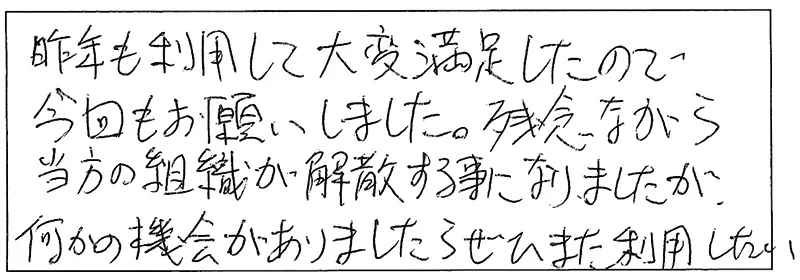 昨年も利用して大変満足したので
今回もお願いしました。残念ながら
当方の組織が解散する事になりましたが、
何かの機会がありましたらぜひまた利用したい